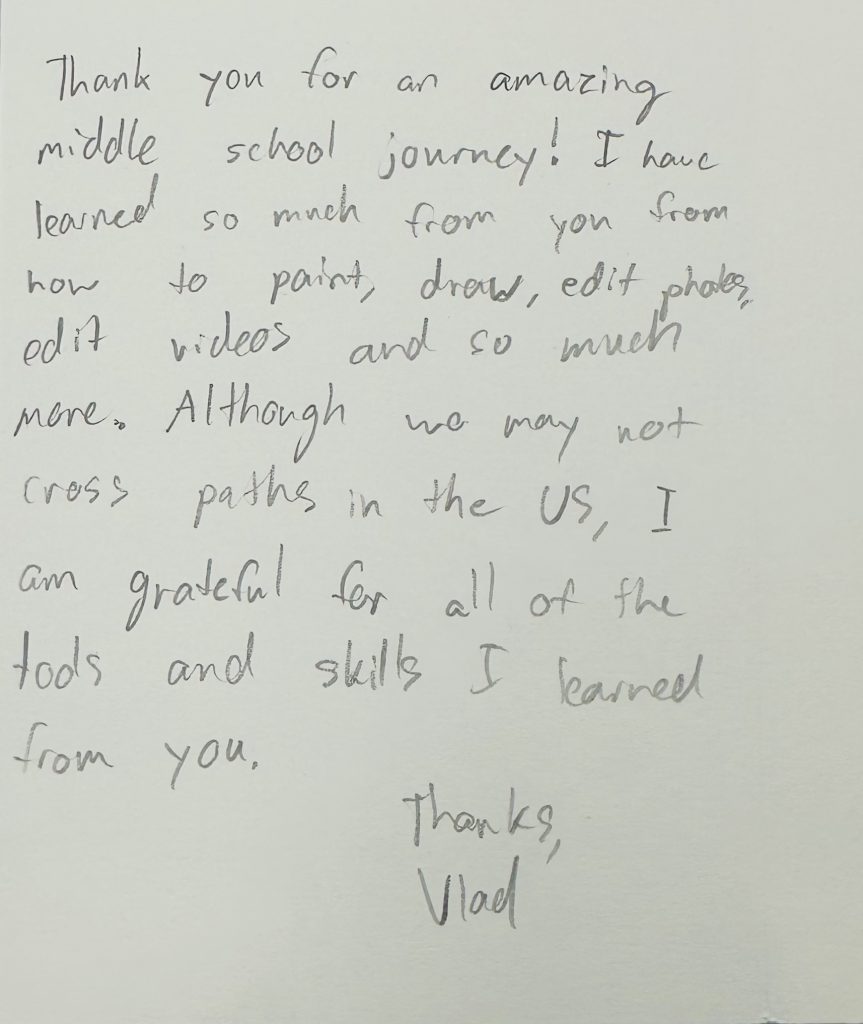 Thank you for an amazing
middle school journey! I have
learned so much from you from
how to paint, draw, edit photos,
edit videos and so much
more. Although we may not
cross paths in the US, I
am grateful for all of the
tools and skills I learned
from you.
Thanks,
Vlad